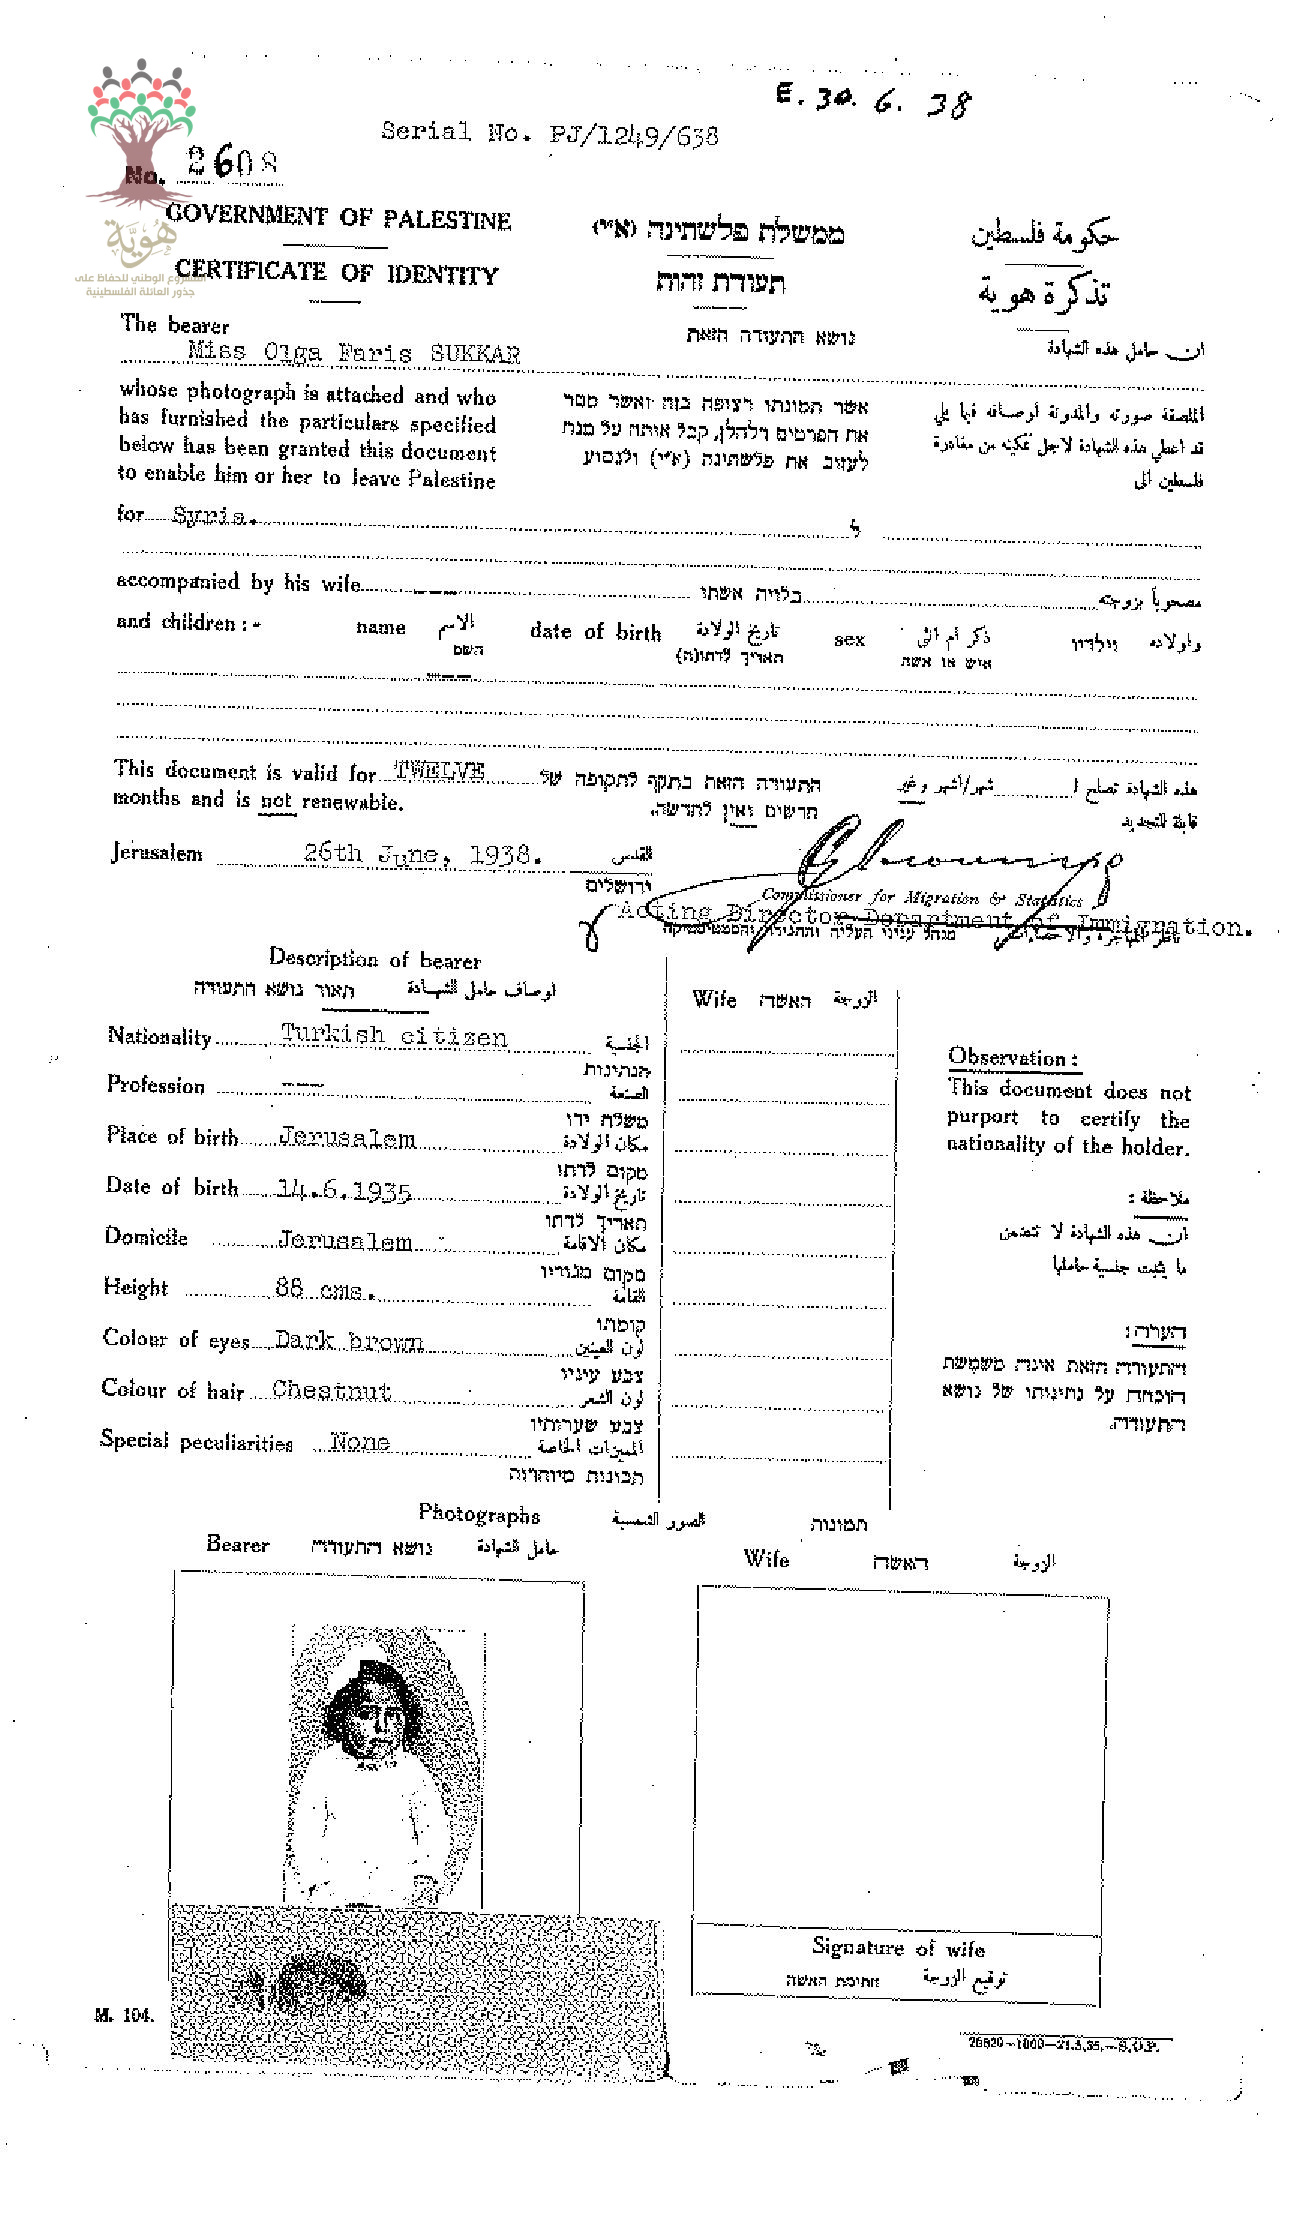 E. 30. 6. 38
Serial No. PJ/1249/638
No. 2608
هُويَّة
المشروع الوطني للحفاظ على
جذور العائلة الفلسطينية
GOVERNMENT OF PALESTINE
ממשלת פלשתינה (א״י)
حكومة فلسطين
CERTIFICATE OF IDENTITY
תעודת זהות
تذكرة هوية
The bearer
נושא התעודה הזאת
ان حامل هذه الشهادة
Miss Olga Faris SUKKAR
whose photograph is attached and who
has furnished the particulars specified
below has been granted this document
to enable him or her to leave Palestine
אשר תמונתו רצופת בזה ואשר מסר
את הפרטים דלהלן, קבל אותה על מנת
לעזוב את פלשתינה (א״י) ולנסוע
الملصقة صورته والمدونة أوصافه فيما يلي
قد اعطي هذه الشهادة لاجل تمكينه من مغادرة
فلسطين الى
for Syria.
ל
accompanied by his wife ---
בלוית אשתו
مصحوباً بزوجته
and children :-
name الاسم
השם
date of birth تاريخ الولادة
תאריך לדתו(ה)
sex ذكر ام انثى
איש או אשה
וילדיו
واولاده
This document is valid for TWELVE
months and is not renewable.
התעודה הזאת בתקף לתקופה של
חדשים ואין לחדשה.
هذه الشهادة تصلح ا شهر/اشهر وغير
قابلة للتجديد
Jerusalem 26th June, 1938. القدس
ירושלים
Commissioner for Migration & Statistics
Acting Director Department of Immigration.
מנהל עניני העליה והסטטיסטיקה
Description of bearer
תאור נושא התעודה
اوصاف حامل الشهادة
Wife האשה الزوجة
Nationality Turkish citizen الجنسية
הנתינות
Profession --- الصنعة
משלח ידו
Place of birth Jerusalem مكان الولادة
מקום לדתו
Date of birth 14.6.1935 تاريخ الولادة
תאריך לדתו
Domicile Jerusalem مكان الاقامة
מקום מגוריו
Height 88 cms. القامة
קומתו
Colour of eyes Dark brown لون العينين
צבע עיניו
Colour of hair Chestnut لون الشعر
צבע שערותיו
Special peculiarities None المميزات الخاصة
תכונות מיוחדות
Observation :
This document does not
purport to certify the
nationality of the holder.
ملاحظة :
ان هذه الشهادة لا تتضمن
ما يثبت جنسية حاملها
הערה:
התעודה הזאת אינה משמשת
הוכחה על נתינותו של נושא
התעודה.
Photographs الصور الشمسية תמונות
Bearer נושא התעודה حامل الشهادة
Wife האשה الزوجة
Signature of wife
חתימת האשה توقيع الزوجة
M. 104.
26820—1000—21.5.35.—S.O.P.